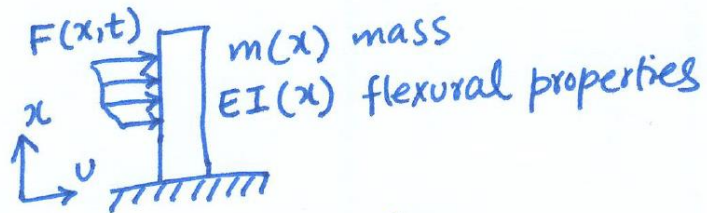 F(x,t)
m(x) mass
EI(x) flexural properties
x
U